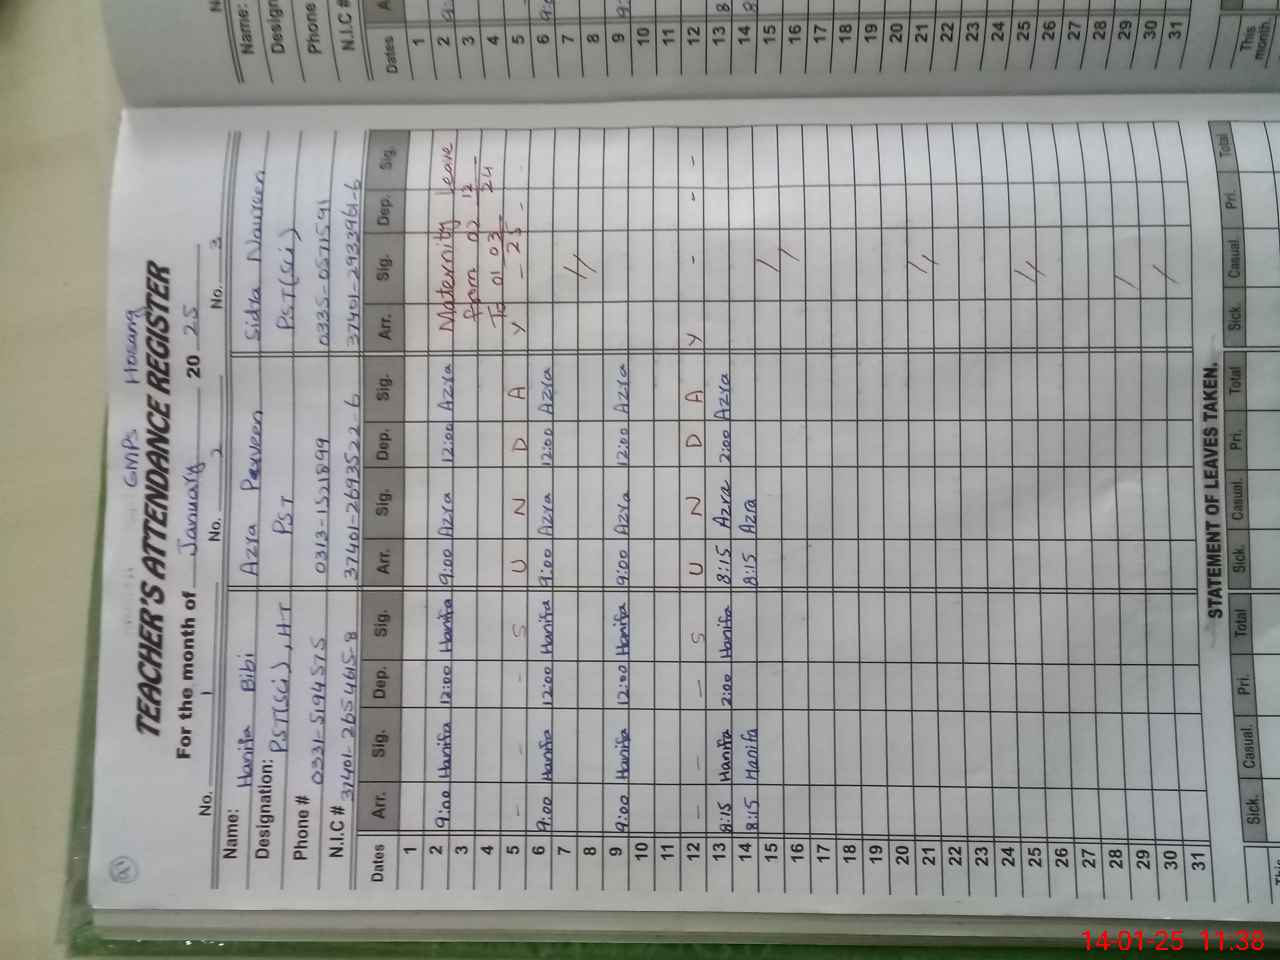 GMPS Hosang
TEACHER'S ATTENDANCE REGISTER
For the month of January 2025
No. 1 No. 2 No. 3
Name: Hanifa Bibi Azra Perveen Sidra Noureen
Designation: PST(Sci), HT PST PST(Sci)
Phone # 0331-5194575 0313-1521899 0335-0571591
N.I.C # 37401-2654615-8 37401-2693522-6 37401-2933961-6
Dates Arr. Sig. Dep. Sig. Arr. Sig. Dep. Sig. Arr. Sig. Dep. Sig.
1
2 9:00 Hanifa 12:00 Hanifa 9:00 Azra 12:00 Azra Maternity Leave
3 From 02 12
4 To 01 03 24
5 - - - S U N D A Y - 25 - -
6 9:00 Hanifa 12:00 Hanifa 9:00 Azra 12:00 Azra
7
8 //
9 9:00 Hanifa 12:00 Hanifa 9:00 Azra 12:00 Azra
10
11
12 - - - S U N D A Y - - -
13 8:15 Hanifa 2:00 Hanifa 8:15 Azra 2:00 Azra
14 8:15 Hanifa 8:15 Azra
15
16 //
17
18
19
20
21 //
22
23
24
25 //
26
27
28
29 /
30 /
31
STATEMENT OF LEAVES TAKEN.
Sick. Casual. Pri. Total Sick. Casual. Pri. Total Sick. Casual. Pri. Total
Name:
Phone
N.I.C #
Dates
1
2
3
4
5
6
7
8
9
10
11
12
13 8
14 8
15
16
17
18
19
20
21
22
23
24
25
26
27
28
29
30
31
This
month.
14-01-25 11:38